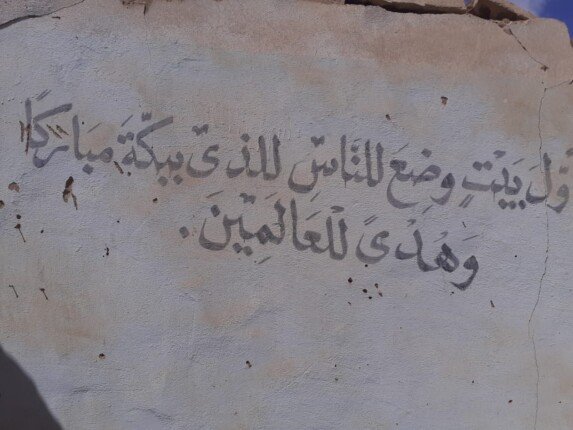 وّلَ بَيْتٍ وضِعَ للنَّاسِ للذىّ ببكّةَ مبَاركًا
وَهْدْىً للْعَالَمِيْنَ.